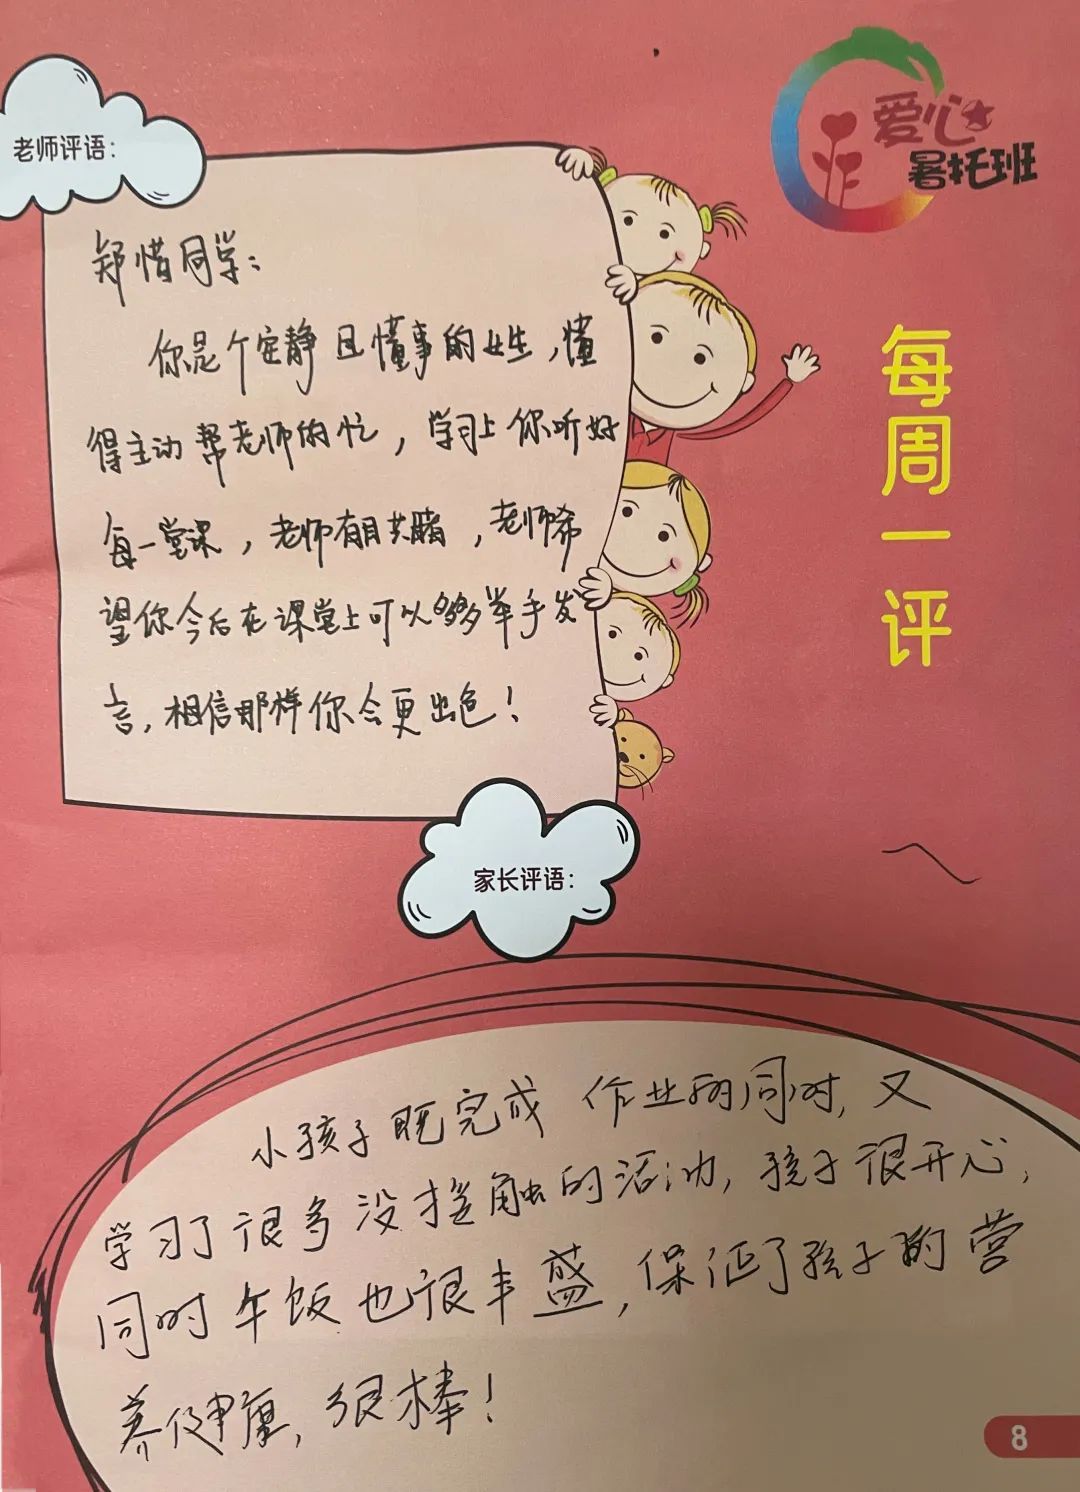 爱心
暑托班
每周一评
老师评语：
郑惜同学：
你是个安静且懂事的女生，懂
得主动帮老师的忙，学习上你听好
每一堂课，老师有目共睹，老师希
望你今后在课堂上可以多多举手发
言，相信那样你会更出色！
家长评语：
小孩子既完成作业的同时，又
学习了很多没接触的活动，孩子很开心，
同时午饭也很丰盛，保证了孩子的营
养健康，很棒！
8